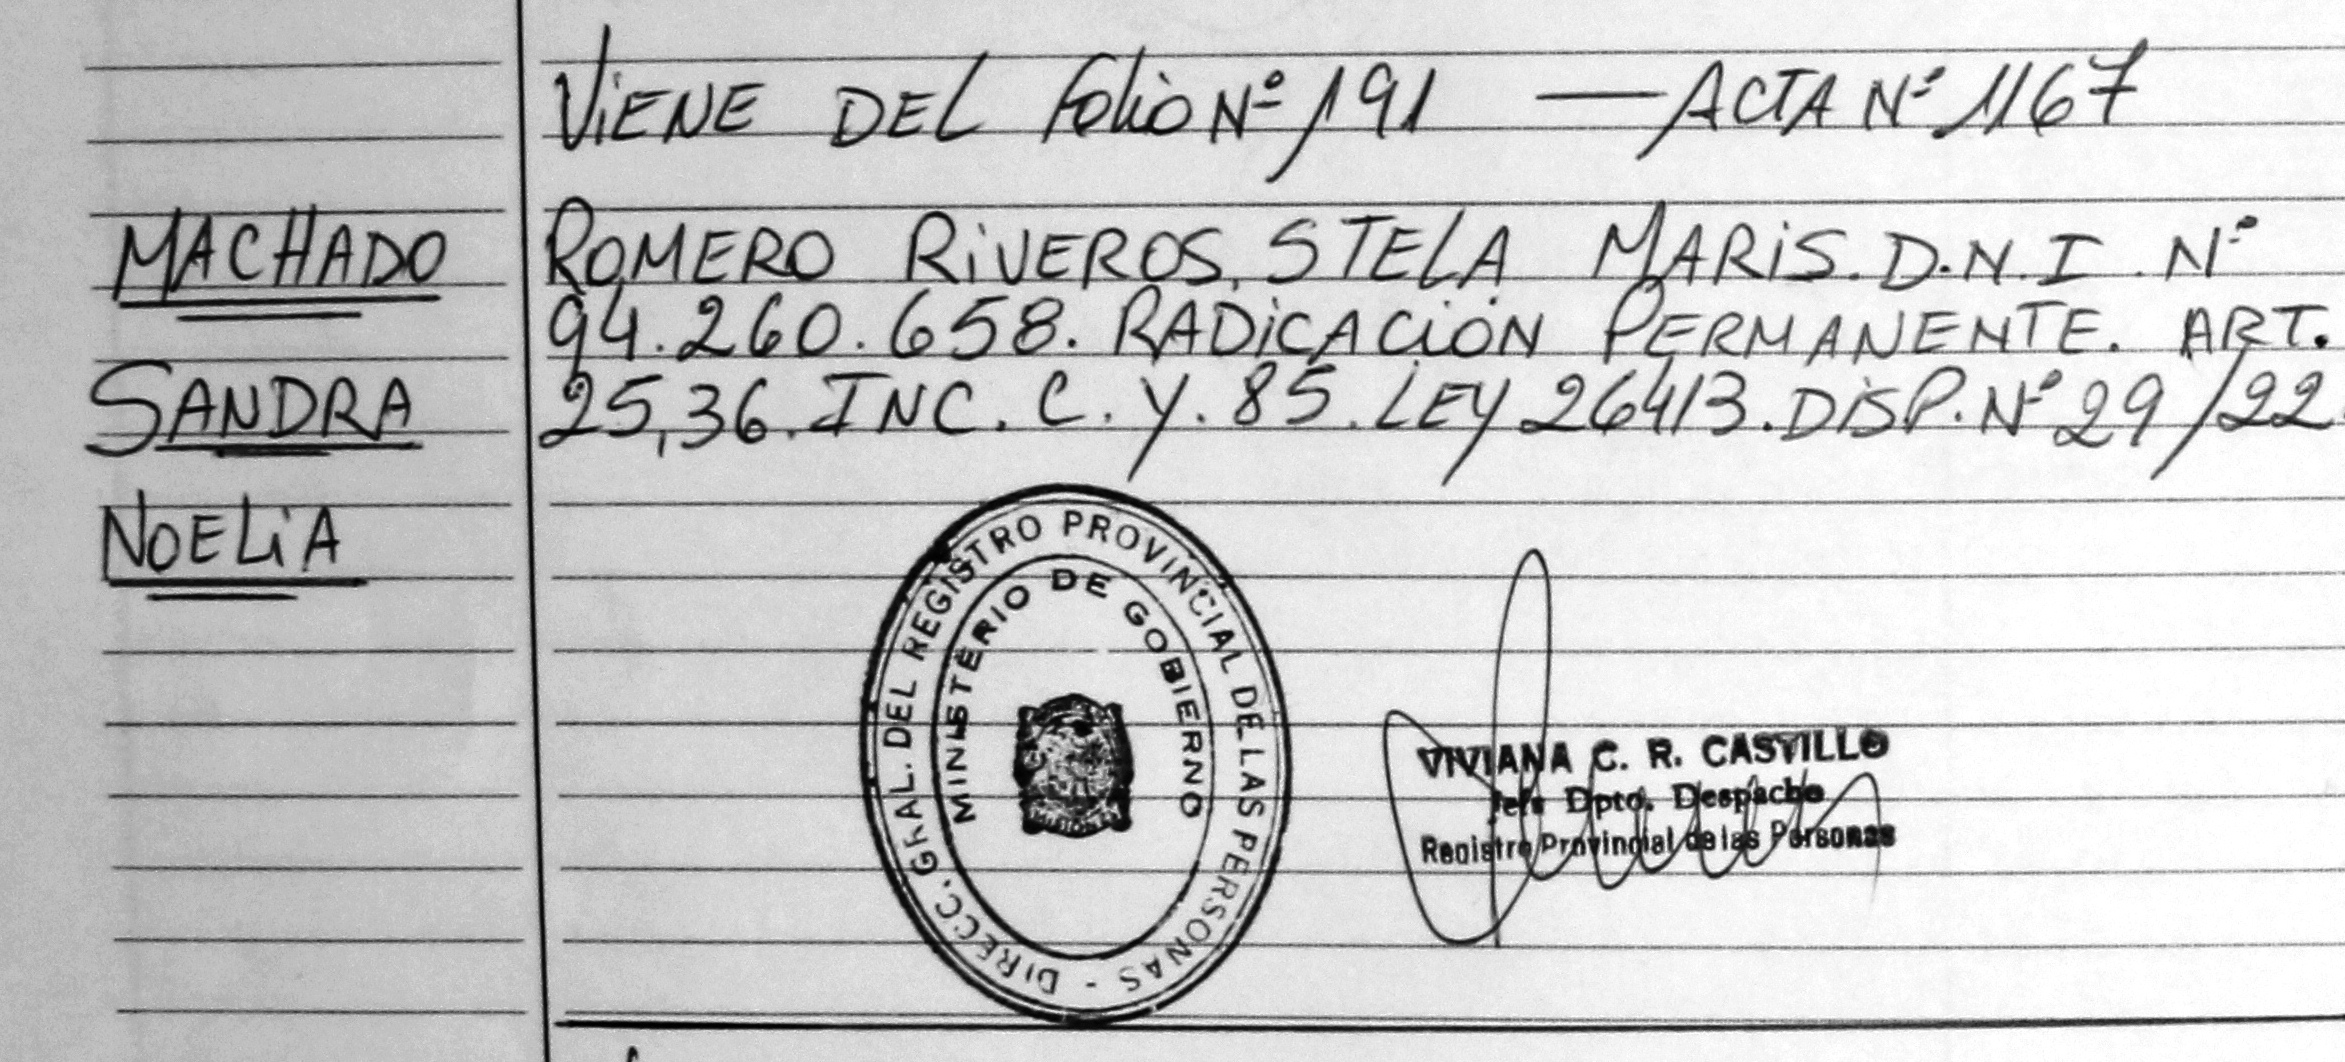 ViENE DEL Folio Nº 191 — ACTA Nº 1167
MACHADO
SANDRA
NOELiA
ROMERO RiVEROS, STELA MARiS. D.N.I. Nº
94.260.658. RADiCACiÓN PERMANENTE. ART.
25,36. INC. C. Y. 85. LEY 26413. DiSP. Nº 29/22.
DIRECC. GRAL. DEL REGISTRO PROVINCIAL DE LAS PERSONAS -
MINISTERIO DE GOBIERNO
VIVIANA C. R. CASTILLO
Jefe Dpto. Despacho
Registro Provincial de las Personas